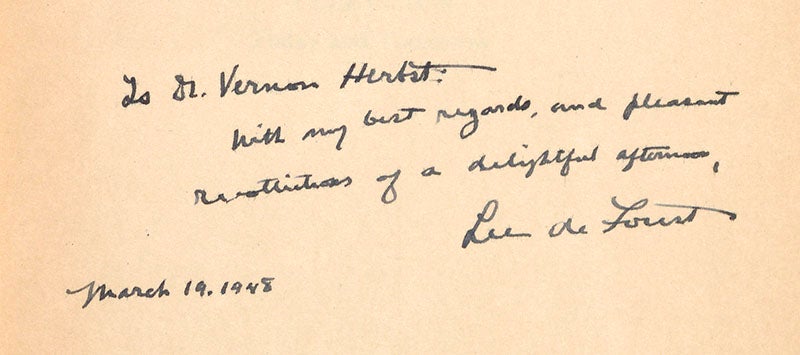 To Dr. Vernon Herbst:
With my best regards, and pleasant
recollections of a delightful afternoon,
Lee de Forest
March 19. 1948